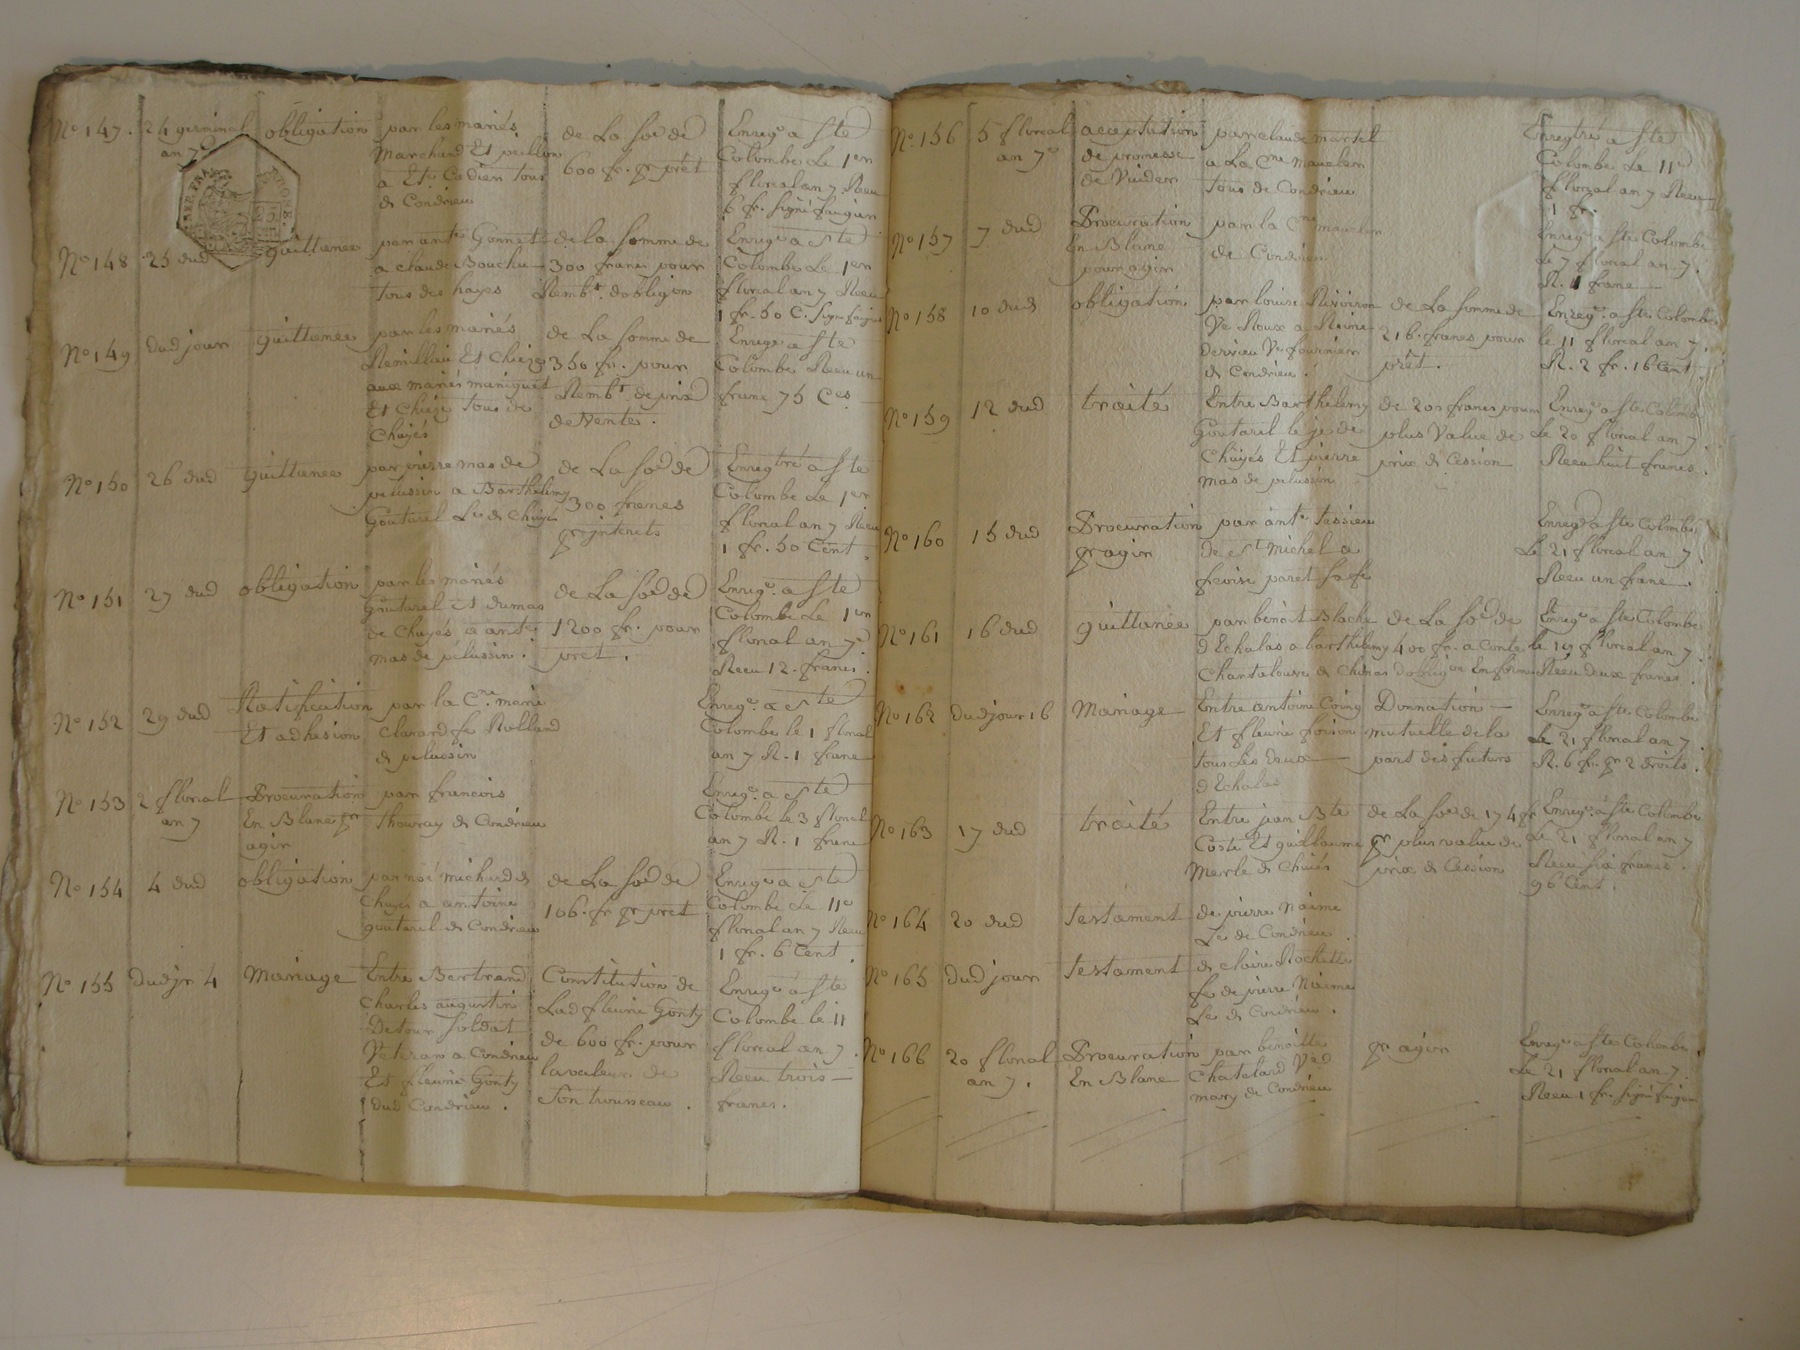 No 147. 24 germinal an 7e
obligation
par les mariés
marchand Et peillon
a Ete Codien tous
de Condrieu
de La soe de
600 fr. pr prêt
Enregé a Ste
Colombe Le 1er
floreal an 7 Recu
6 fr. signé faugier
No 148 25 dud
quittance
par ante Gonnet
a claude Bouchu
tous des hayes
de la somme de
300 francs pour
Rembt. dobligon
Enregé a Ste
Colombe Le 1er
floreal an 7 Recu
1 fr. 50 C. signé faugier
No 149 dud jour
quittance
par les mariés
Remillier Et Chieze
aux mariés muniguet
Et Chieze tous de
Chuyés
de La somme de
350 fr. pour
Rembt de prix
de Ventes.
Enregé a Ste
Colombe Recu un
franc 75 Ces
No 150 26 dud
quittance
par pierre mas de
pelussin a Barthelemy
Goutarel Le de Chuyés
de La soe de
300 francs
pr interets
Enregtré a Ste
Colombe Le 1er
floreal an 7 Recu
1 fr. 50 Cent.
No 151 27 dud
obligation
par les mariés
goutarel Et dumas
de Chuyés a ante
mas de pelussin.
de La soe de
1200 fr. pour
pret.
Enregé. a Ste
Colombe Le 1er
floreal an 7e
Recu 12. francs.
No 152 29 dud
Ratification
Et adhésion
par la Cne marie
Clarard fe Rolland
de pelussin
Enregé. a Ste
Colombe le 1 floreal
an 7 R. 1 franc
No 153 2 floreal an 7
Procuration
En Blanc pr
agir
par francois
thouray de Condrieu
Enregé. a Ste
Colombe le 3 floreal
an 7 R. 1 franc
No 154 4 dud
obligation
par noé michard de
Chuyes a antoine
goutarel de Condrieu
de La soe de
106. fr pr prêt
Enregé a Ste
Colombe Le 11e
floreal an 7 Recu
1 fr. 6 Cent.
No 155 Dud jr 4
Mariage
Entre Bertrand
Charles augustin
Detour Soldat
Veteran a Condrieu
Et fleurie Gonty
dud Condrieu.
Constitution de
Lad fleurie Gonty
de 600 fr. pour
la valeur de
son trousseau.
Enregé a Ste
Colombe le 11
floreal an 7.
Recu trois
francs.
No 156 5 floreal an 7e
acceptation
de promesse
de Vuider
par claude martel
a La Cne
tous de Condrieu
Enregtré a Ste
Colombe Le 11e
floreal an 7 Recu
1 fr.
No 157 7 dud
Procuration
En Blanc
pour agir
par la Cne
de Condrieu
Enregé a Ste Colombe
Le 7 floreal an 7.
R. 1 franc
No 158 10 dud
obligation
par louise Rivoiron
Ve Roux a Reine
dervieu Ve fournier
de Condrieu.
de La somme de
216. francs pour
prêt.
Enregé. a Ste Colombe
le 11 floreal an 7.
R. 2 fr. 16 Cent.
No 159 12 dud
traité
Entre Barthelemy
Goutarel le je de
Chuyés Et pierre
mas de pelussin
de 200 francs pour
plus Value de
prix de Cession
Enregé a Ste Colombe
Le 20 floreal an 7.
Recu huit francs.
No 160 15 dud
Procuration
pr agir
par ante. tessieu
de St michel a
paret sa fe
Enregé a Ste Colombe
Le 21 floreal an 7
Recu un franc.
No 161 16 dud
quittance
par benoit Blache
d Echalas a barthelemy
Chantalouve de
de La soe de
400 fr. a Conte
dobligon En forme
Enregé a Ste Colombe
le 19 floreal an 7.
Recu deux francs.
No 162 dud jour 16
Mariage
Entre antoine Coing
Et fleurie foison
tous Les deux
d Echalas
Donnation
mutuelle de la
part des futurs
Enregé a Ste Colombe
Le 21 floreal an 7
R. 6 fr. pr 2 droits.
No 163 17 dud
traité
Entre jean Bte
Coste Et guillaume
Merle de Chuiés
de La soe de 174 fr
pr plus value de
prix de Cession
Enregé. a Ste Colombe
Le 21 floreal an 7
Recu six francs.
96 Cent.
No 164 20 dud
testament
de pierre Naime
Le de Condrieu.
No 165 Dud jour
testament
de claire Rochette
fe de pierre Naime
Le de Condrieu.
No 166 20 floreal an 7.
Procuration
En Blanc
par benoitte
Chatelard Ve d
mary de Condrieu
pr agir
Enregé a Ste Colombe.
Le 21 floreal an 7.
Recu 1 fr. signé faugier